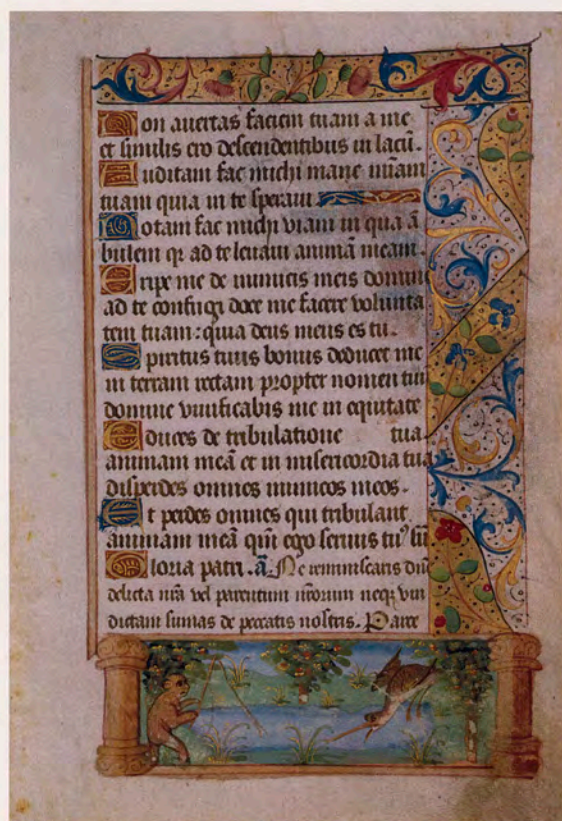 Non auertas faciem tuam a me
et similis ero descendentibus in lacū.
Auditam fac michi mane mīam
tuam quia in te speraui.
Notam fac michi viam in qua ā
bulem qr ad te leuaui animā meam.
Eripe me de inimicis meis domine
ad te confugi doce me facere volunta
tem tuam: quia deus meus es tu.
Spiritus tuus bonus deducet me
in terram rectam propter nomen tuū
domine viuificabis me in equitate
Educes de tribulatione tua
animam meā et in misericordia tua
disperdes omnes inimicos meos.
Et perdes omnes qui tribulant
animam meā qm̄ ego seruus tuꝰ sū
Gloria patri. ā. Ne reminiscaris dn̄e
delicta nr̄a vel parentum nr̄orum neqꝫ vin
dictam sumas de peccatis nostris. Parce